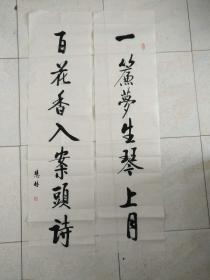 一簾夢生琴上月
百花香入案頭詩